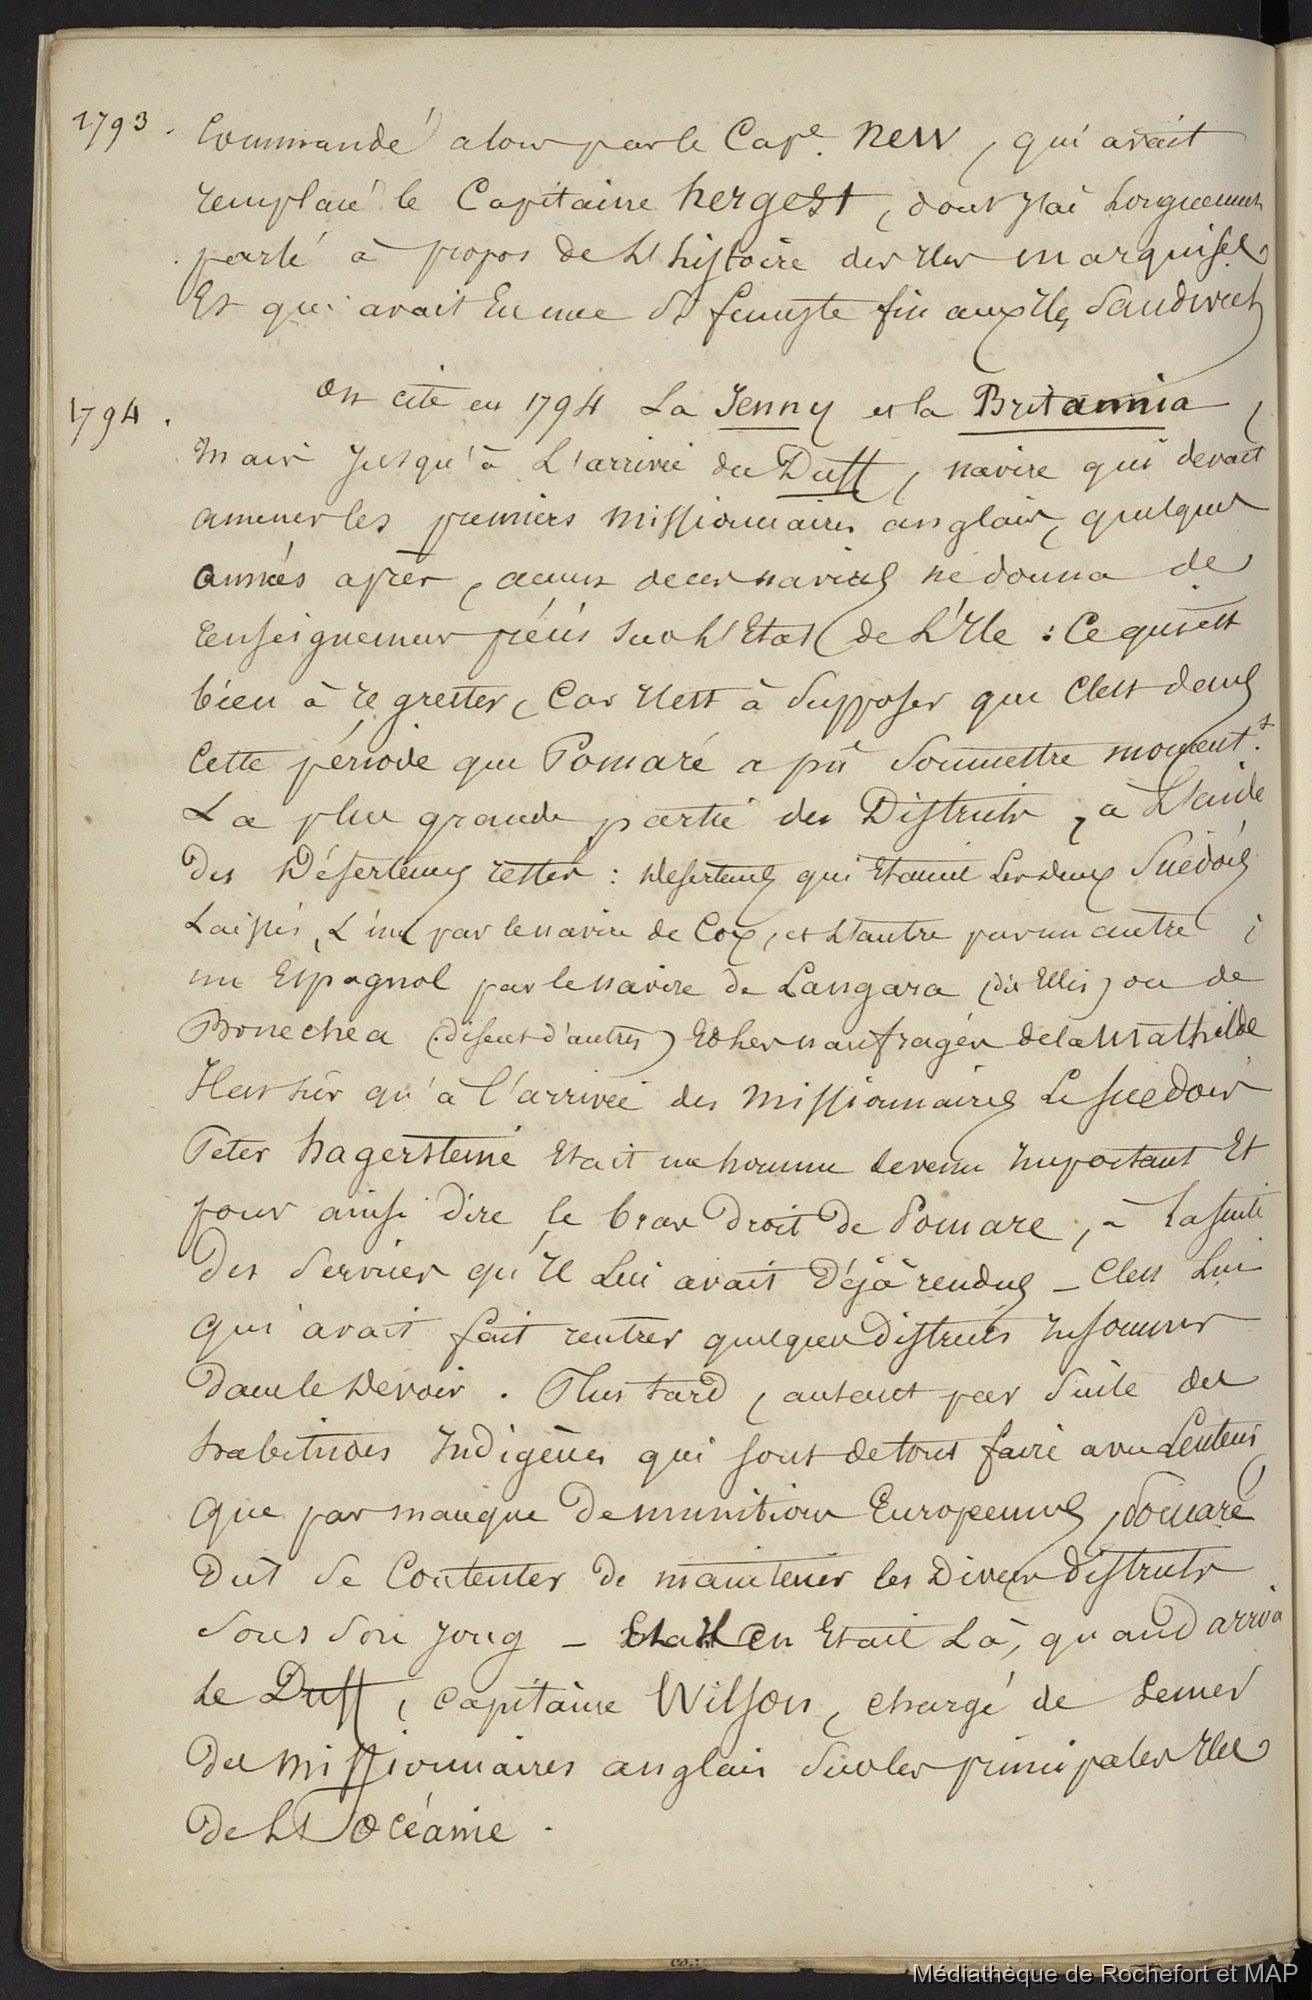 1793. Commandé alors par le Cap.e New, qui avait
remplacé le Capitaine hergest, dont j'ai longuement
parlé à propos de l'histoire des Iles marquises
Et qui avait Eu une si funeste fin aux Iles Sandwich
1794. On cite en 1794 La Jenny et la Britannia,
mais jusqu'à L'arrivée du Duff, navire qui devait
amener les premiers missionnaires anglais, quelques
années après, aucun de ces navires ne donna de
renseignemens précis sur l'Etat de L'Ile : Ce qui est
bien à regretter, Car Il est à Supposer que C'est dans
Cette période que Pomaré a pû Soumettre moment.t
La plus grande partie des Districts, à L'aide
des Déserteurs restés : déserteurs qui Etaient Les deux Suédois
Laissés, L'un par le navire de Cox, et L'autre par un autre ;
un Espagnol par le navire de Langara (dit Ellis) ou de
Bonechea (disent d'autres) Et les naufragés de la Mathilde
Il est sûr qu'à l'arrivée des missionnaires Le suedois
Peter hagersteine Etait un homme devenu Important Et
pour ainsi dire le bras Droit de Pomare, à La suite
Des Services qu'Il Lui avait Déjà rendus – C'est Lui
qui avait fait rentrer quelques districts Insoumis
dans le devoir. Plus tard, autant par Suite des
habitudes Indigènes qui sont de tout faire avec Lenteur,
que par manque De munitions Européennes, Pomaré
Dût Se Contenter De maintenir les Divers districts
Sous Son joug – Il En Etait Là, quand arriva
Le Duff, capitaine Wilson, chargé de semer
des missionnaires anglais Sur les principales Iles
de L'Océanie.
Médiathèque de Rochefort et MAP